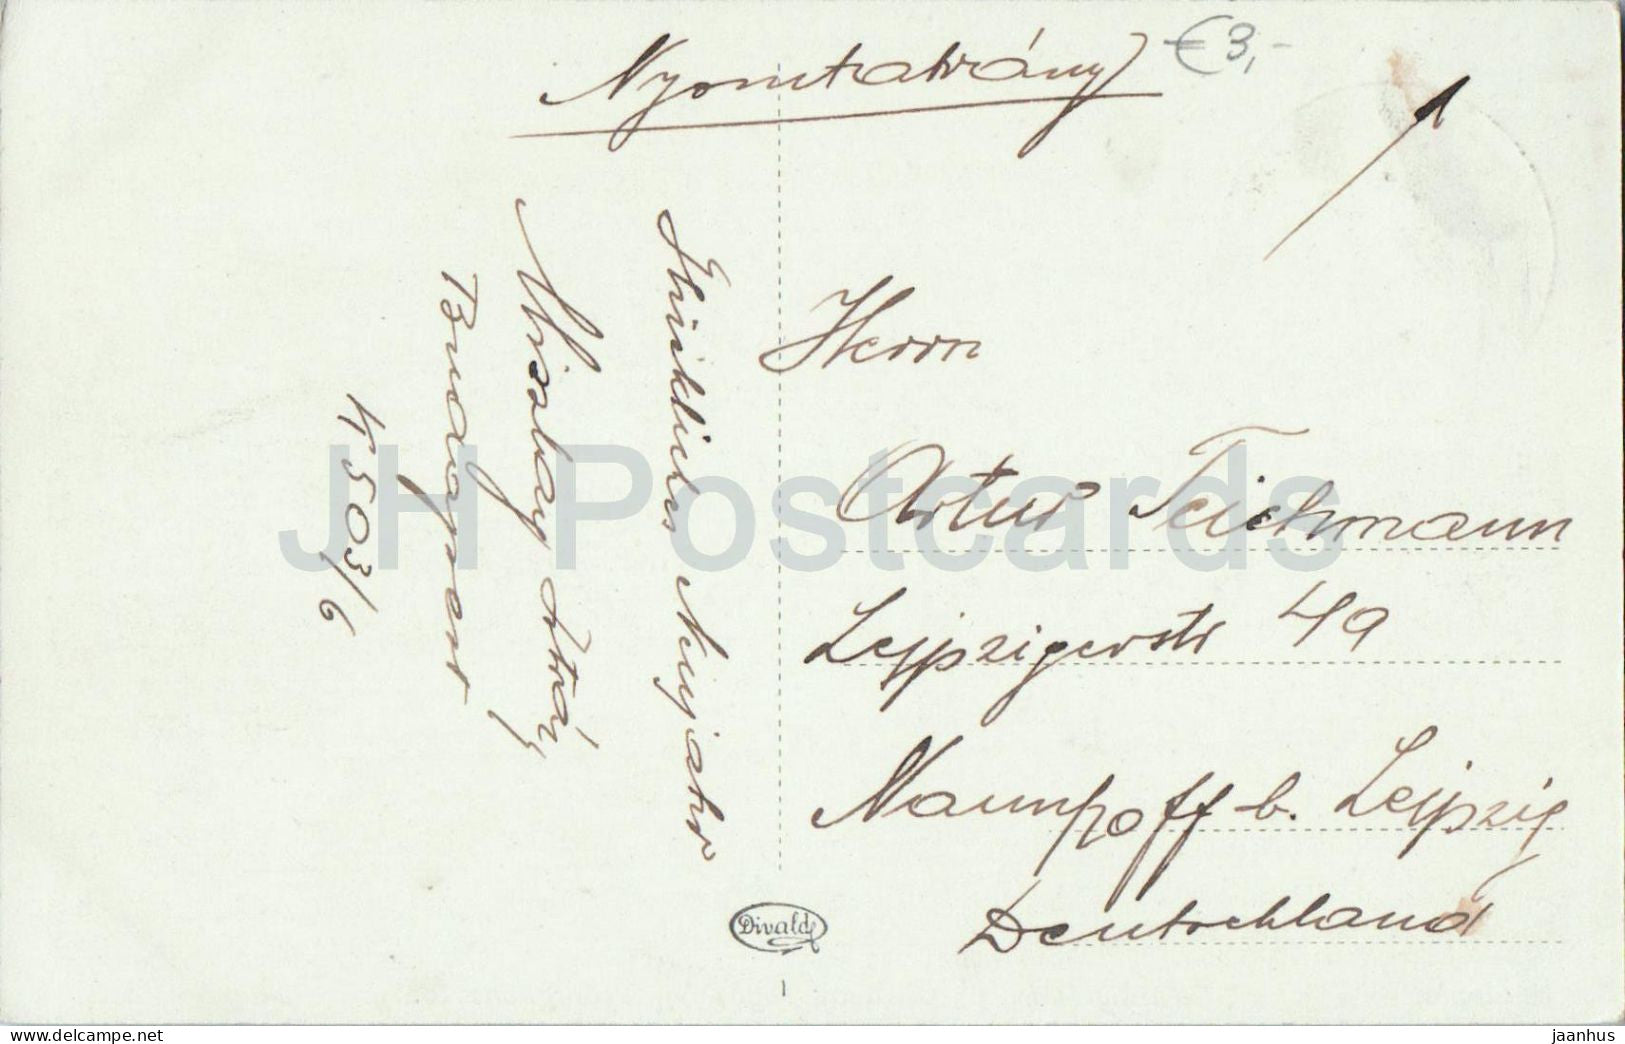 Nyomtatvány
€3,-
Glückliches Neujahr
Zoltán
Budapest
4503/6
Herrn
Artur Teichmann
Leipzigerstr 49
Naunhoff b. Leipzig
Deutschland
Divald
1
JH Postcards
www.delcampe.net
jaanhus